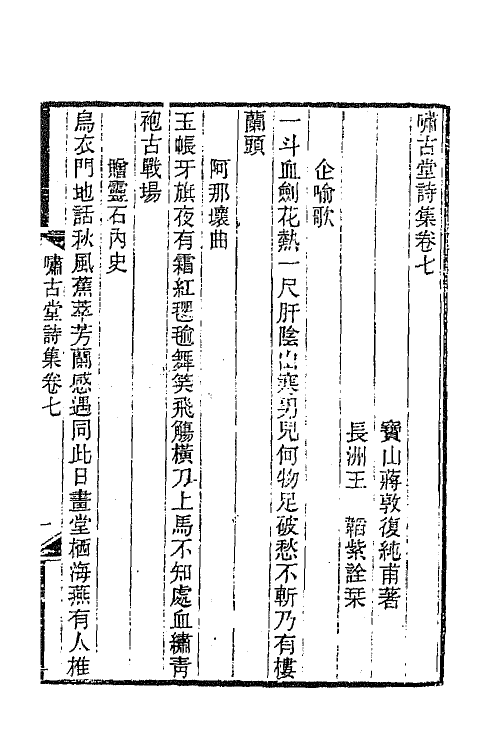 嘯古堂詩集卷七
寶山蔣敦復純甫著
長洲王　韜紫詮栞
企喻歌
一斗血劍花熱一尺肝陰山寒男兒何物足破愁不斬乃有樓
蘭頭
阿那瓌曲
玉帳牙旗夜有霜紅毾毹舞笑飛觴橫刀上馬不知處血繡靑
袍古戰場
贈靈石內史
烏衣門地話秋風蕉萃芳蘭感遇同此日畫堂栖海燕有人椎
嘯古堂詩集卷七
一